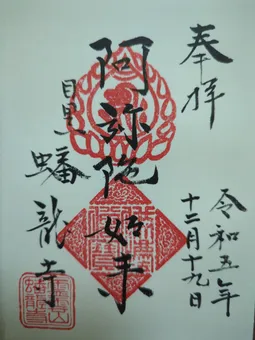 奉拝
令和五年
十二月十九日
阿弥陀如来
目黒
蟠龍寺